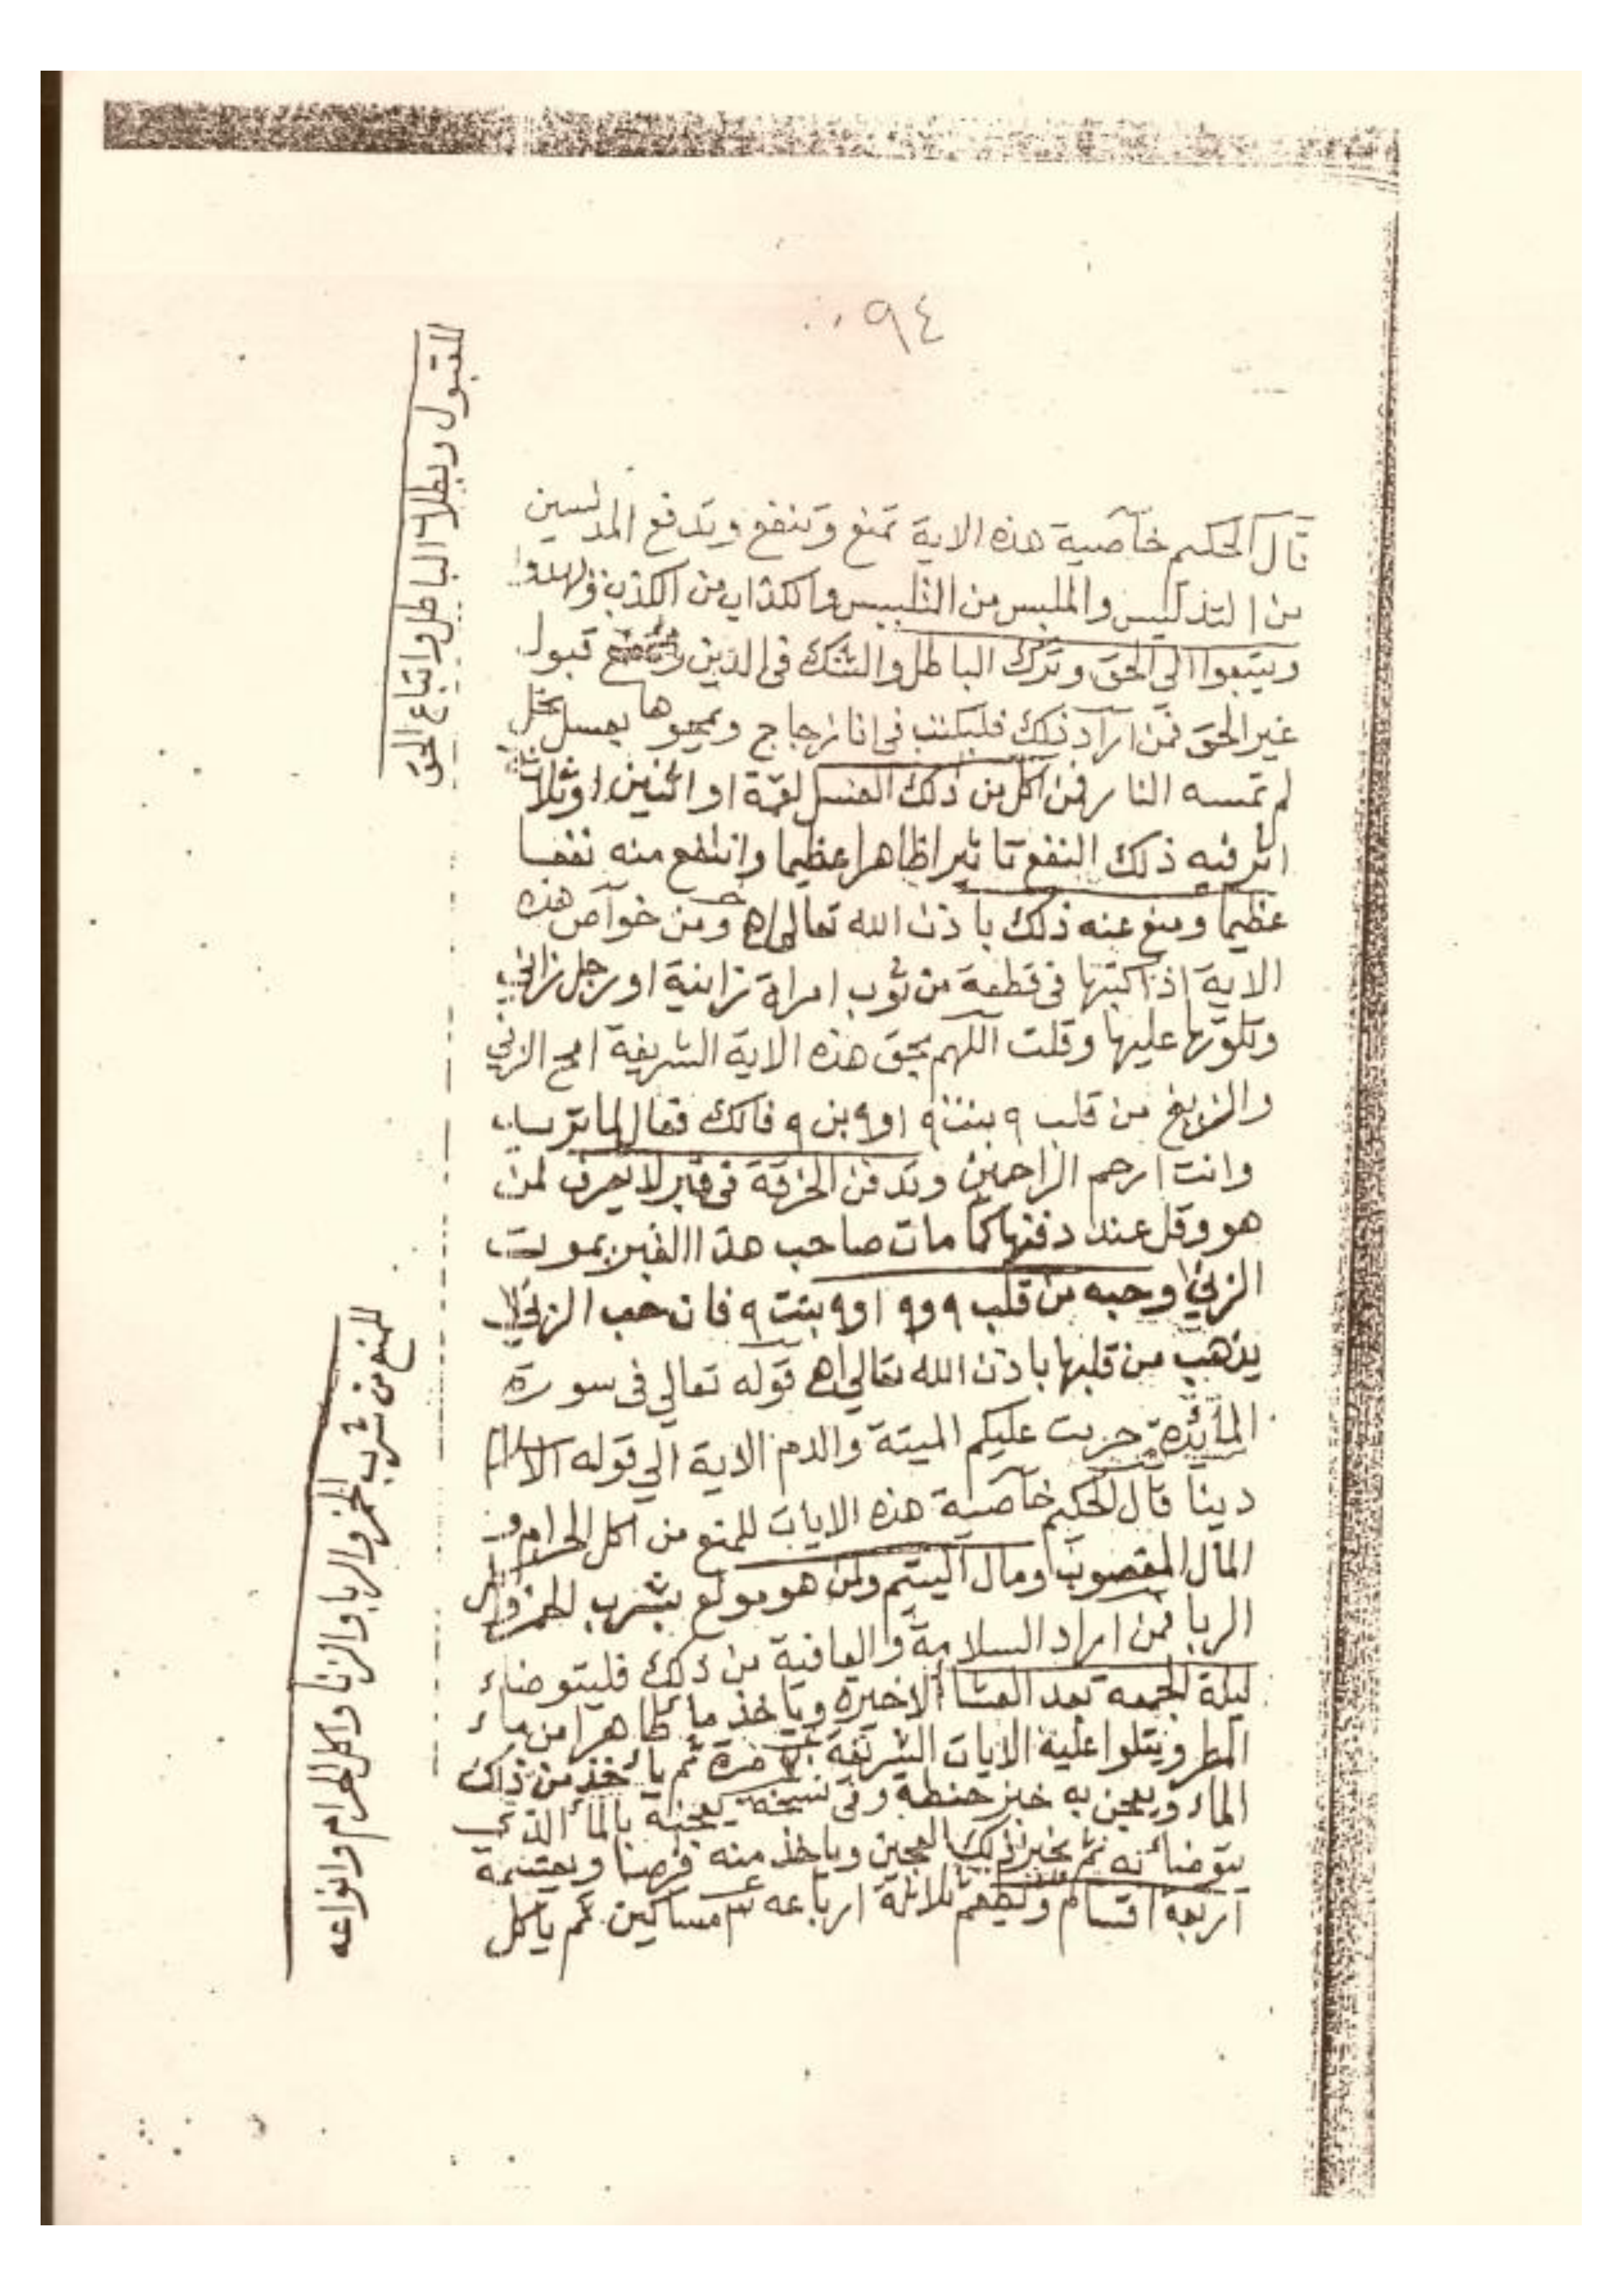 ٩٤
للقبول وبطلان الباطل واتباع الحق
قال الحكيم خآصية هذه الاية تمنع وتنفع وتدفع المدلسين
من التدليس والملبس من التلبيس والكذاب من الكذب
ويتبعوا الى الحق وترك الباطل والشك فى الدين قبول
غير الحق فمن اراد ذلك فليكتب فى انا زجاج ويمحوها بعسل نحل
لم تمسه النار فمن اكل من ذلك العسل لقمة او اثنين او ثلاث
اثر فيه ذلك النفع تاثيرا ظاهرا عظيما وانتفع منه نفعا
عظيما ومنع عنه ذلك باذن الله تعالى اھ ومن خوآص هذه
الاية اذا كتبتها فى قطعة من ثوب امراة زانية او رجل زاني
وتلوتها عليها وقلت اللهم بحق هذه الاية الشريفة امح الزني
والزيغ من قلب ٩ بنت ٩ او ٩ بن ٩ فانك فعال لما تريد
وانت ارحم الراحمين وتدفن الخرقة فى قبر لا يعرف لمن
هو وقل عند دفنها كما مات صاحب هذا القبر يموت
الزني وحبه من قلب ٩ و٩ او ٩ بنت ٩ فان حب الزني
يذهب من قلبها باذن الله تعالي اھ قوله تعالي فى سورة
المائدة حرمت عليكم الميتة والدم الاية الي قوله الاسلام
دينا قال الحكيم خآصية هذه الايات للمنع من اكل الحرام و
المال المغصوب ومال اليتيم ولمن هو مولع بشرب الخمر و
الربا فمن اراد السلامة والعافية من ذلك فليتوضاء
ليلة الجمعه بعد العشا الاخيرة وياخذ ما طاهرا من ماء
المطر ويتلوا عليه الايات الشريفة مرة ثم يأخذ من ذلك
الماء ويعجن به خبز حنطة وفى نسخة يعجنه بالماء الذي
يتوضأ به ثم يخبز ذلك العجين وياخذ منه قرصا ويقسمه
اربعة اقسام ويطعم ثلاثة ارباعه مساكين ثم ياكل
للمنع من شرب الخمر والربا والزنا واكل الحرام وانواعه